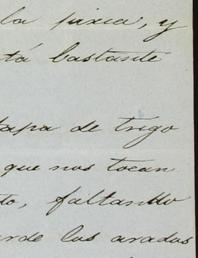 la pixca, y
tá bastante
tapa de trigo
que nos tocan
to, faltando
arde los arados